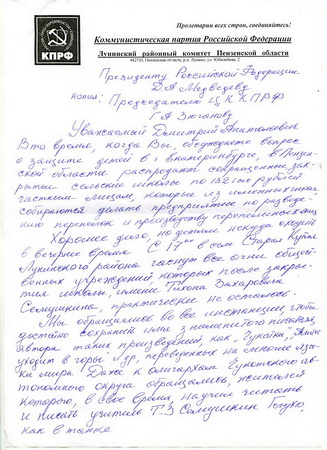 Пролетарии всех стран, соединяйтесь!
КПРФ
Коммунистическая партия Российской Федерации
Лунинский районный комитет Пензенской области
442730, Пензенская область, р.п. Лунино, ул. Юбилейная, 2
Президенту Российской Федерации
Д А Медведеву
копия: Председателю ЦК КПРФ
Г А Зюганову
Уважаемый Дмитрий Анатольевич
В то время, когда Вы, обсуждаете вопрос
о защите детей в г Екатеринбурге, в Пензен-
ской области распродают сокращенные, зак-
рытые сельские школы по 152 тыс рублей
частным лицам, которые из именных школ
собираются делать предприятие по разведе-
нию перепелок и производству перепелиных яиц
Хорошее дело, но детям некуда сходить
в вечернее время. С 17 00 в селе Старая Кутля
Лунинского района гаснут все огни общест-
венных учреждений которых после закры-
тия школы, имени Тихона Захаровича
Семушкина, практически не осталось.
Мы обращались во все инстанции, чтобы
достойно сохранить имя знаменитого писателя,
автора таких произведений, как "Чукотка", "Алитет
уходит в горы" и др, переведенных на многие язы-
ки мира. Даже к олигархам Чукотского ав-
тономного округа обращались, жителей
которого, в свое время, научил читать
и писать учитель Т.З Семушкин.
как в танке